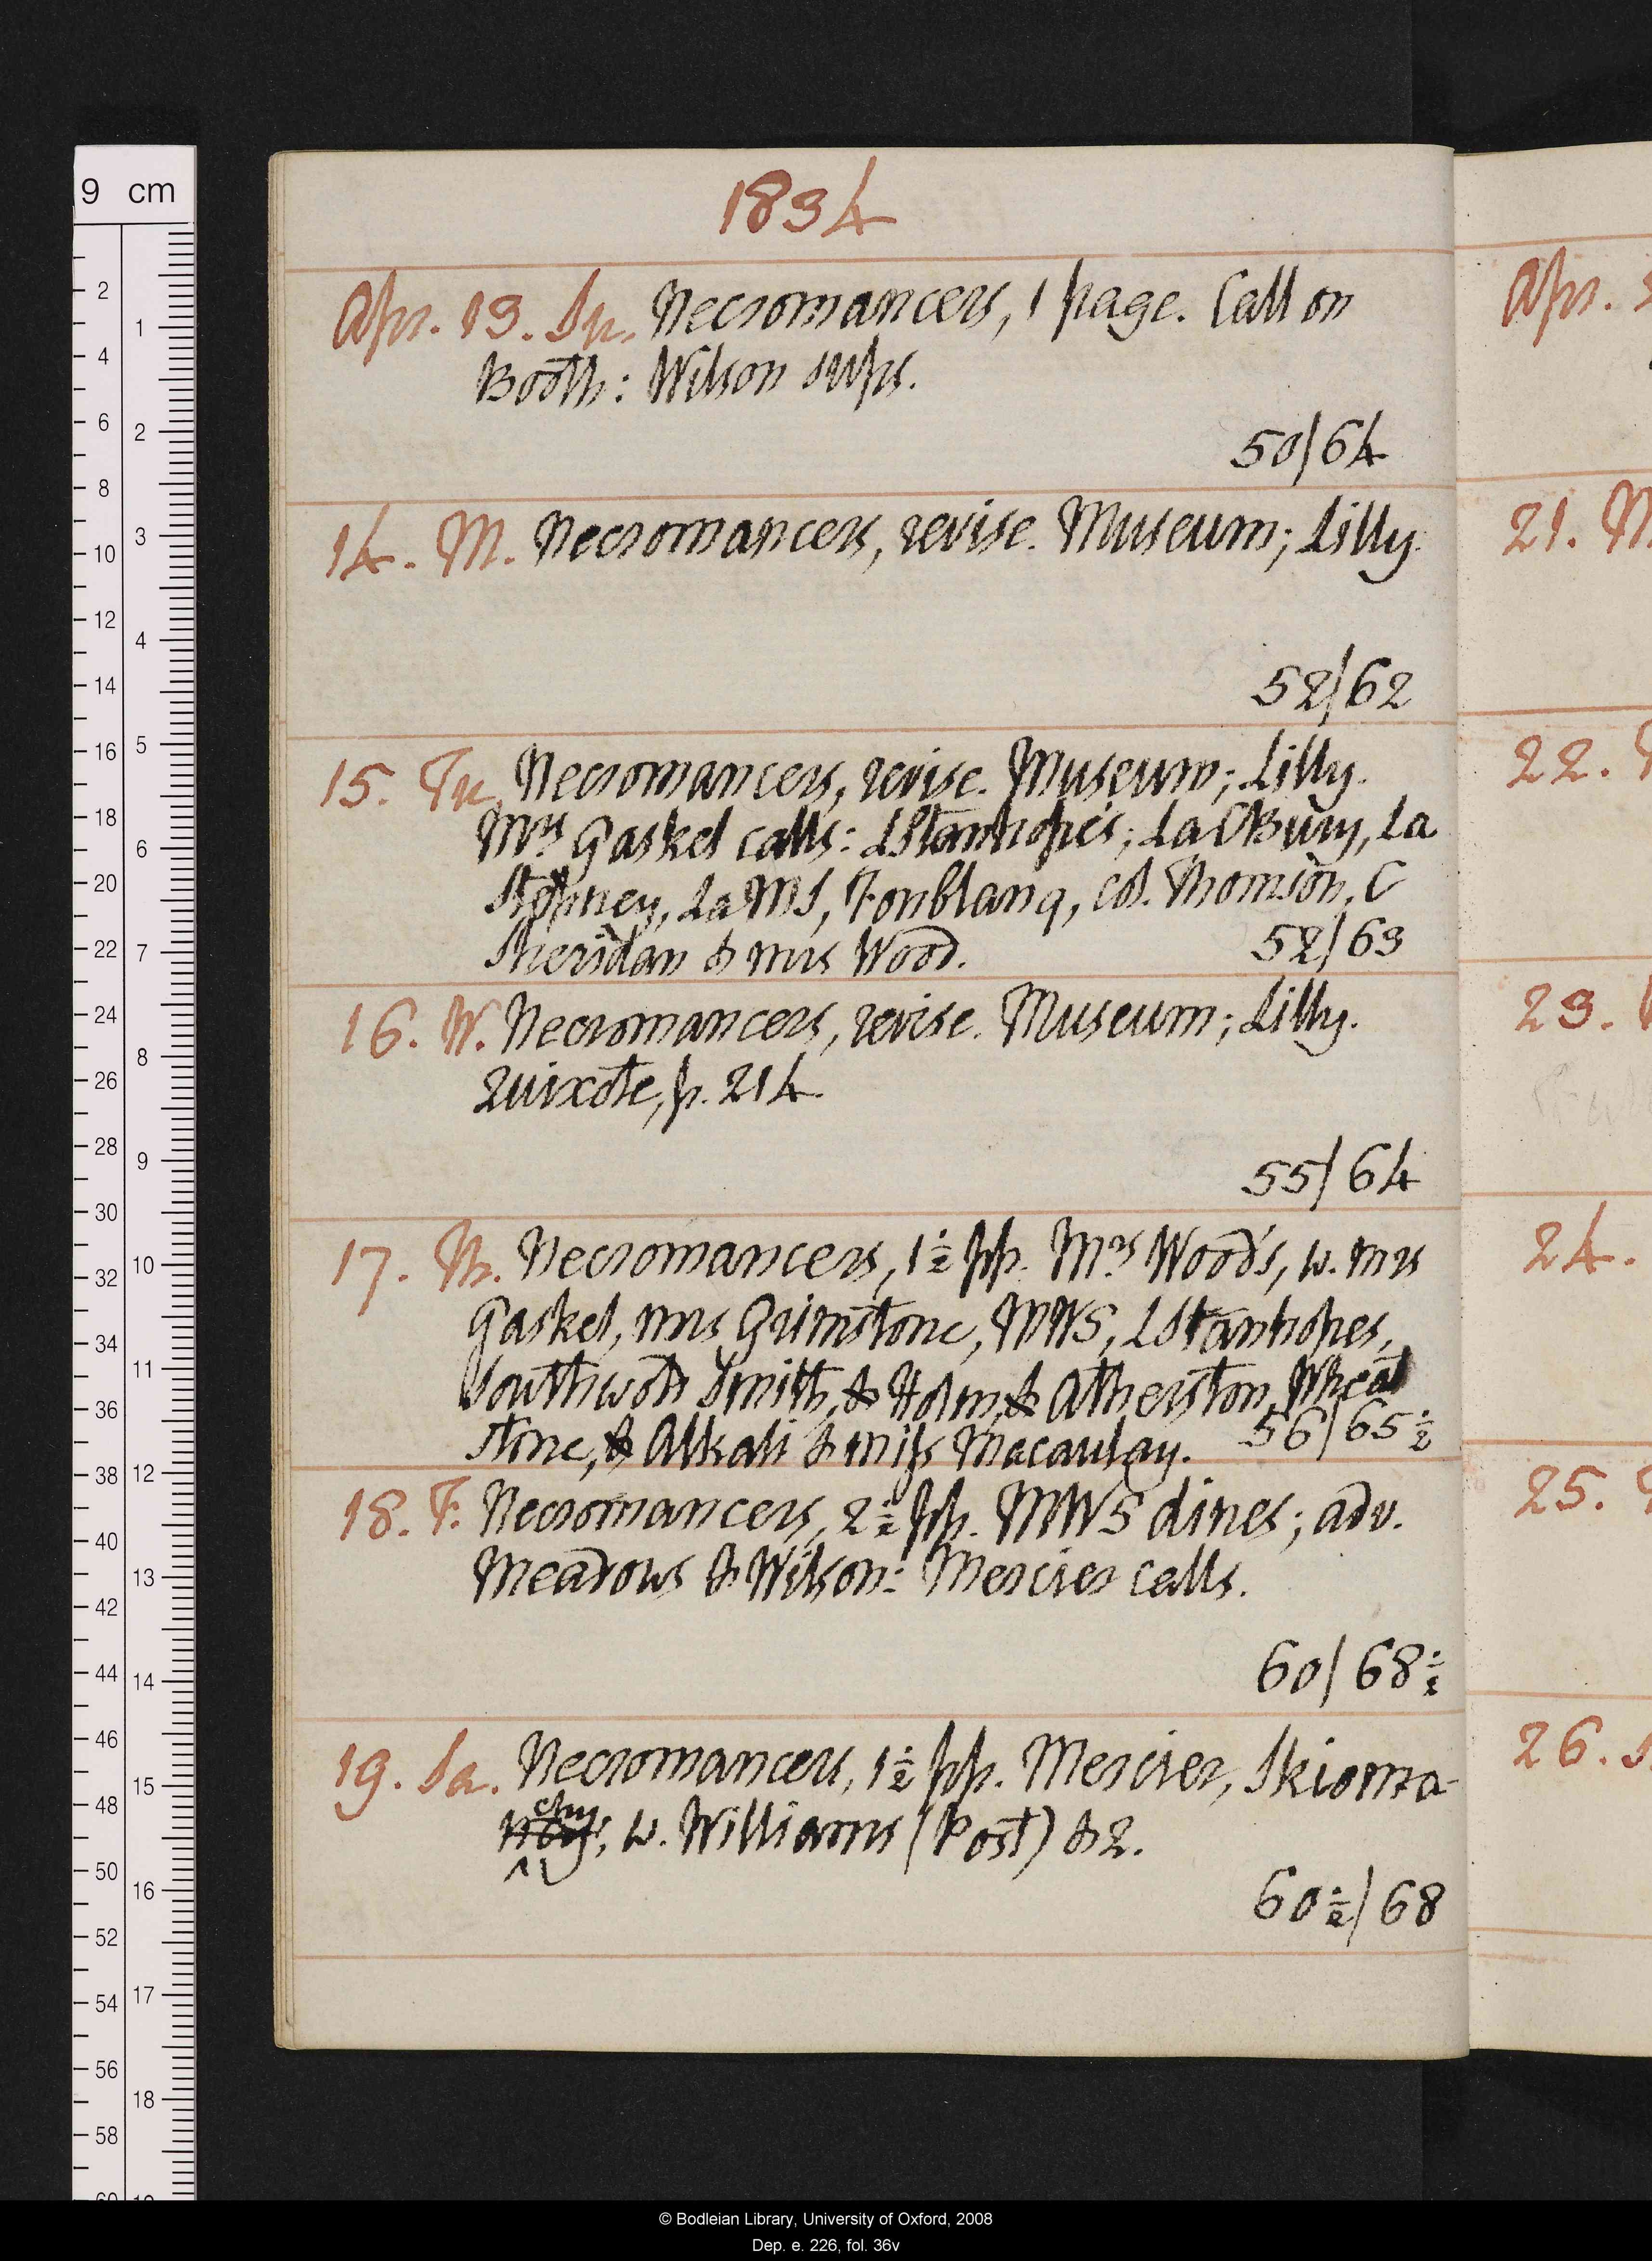 9 cm
1834
Apr. 13. Su. Necromancers, 1 page. Call on
Booth: Wilson sups.
50/64
14. M. Necromancers, revise. Museum; Lilly.
52/62
15. Tu. Necromancers, revise. Museum; Lilly.
Mrs Gaskel calls: LStanhope's; La CBury, La
Stepney, La MS, Fonblanq, Col. Thomson, C
Sheridan & mrs Wood.
52/63
16. W. Necromancers, revise. Museum; Lilly.
Quixote, p. 214
55/64
17. Th. Necromancers, 1½ pp. Mrs Wood's, w. mrs
Gaskel, mrs Grimstone, MWS, LStanhopes,
Southwoth Smith, & Holm, & Atherston, Wheat
stone, & Alkali & miss Macaulay.
56/65½
18. F. Necromancers, 2½ pp. MWS dines; adv.
Meadows & Wilson: Mercier calls.
60/68½
19. Sa. Necromancers, 1½ pp. Mercier, Skioma-
chy, w. Williams (Post) & 2.
60½/68
Apr.
21. M
22.
23.
24.
25.
26.
© Bodleian Library, University of Oxford, 2008
Dep. e. 226, fol. 36v